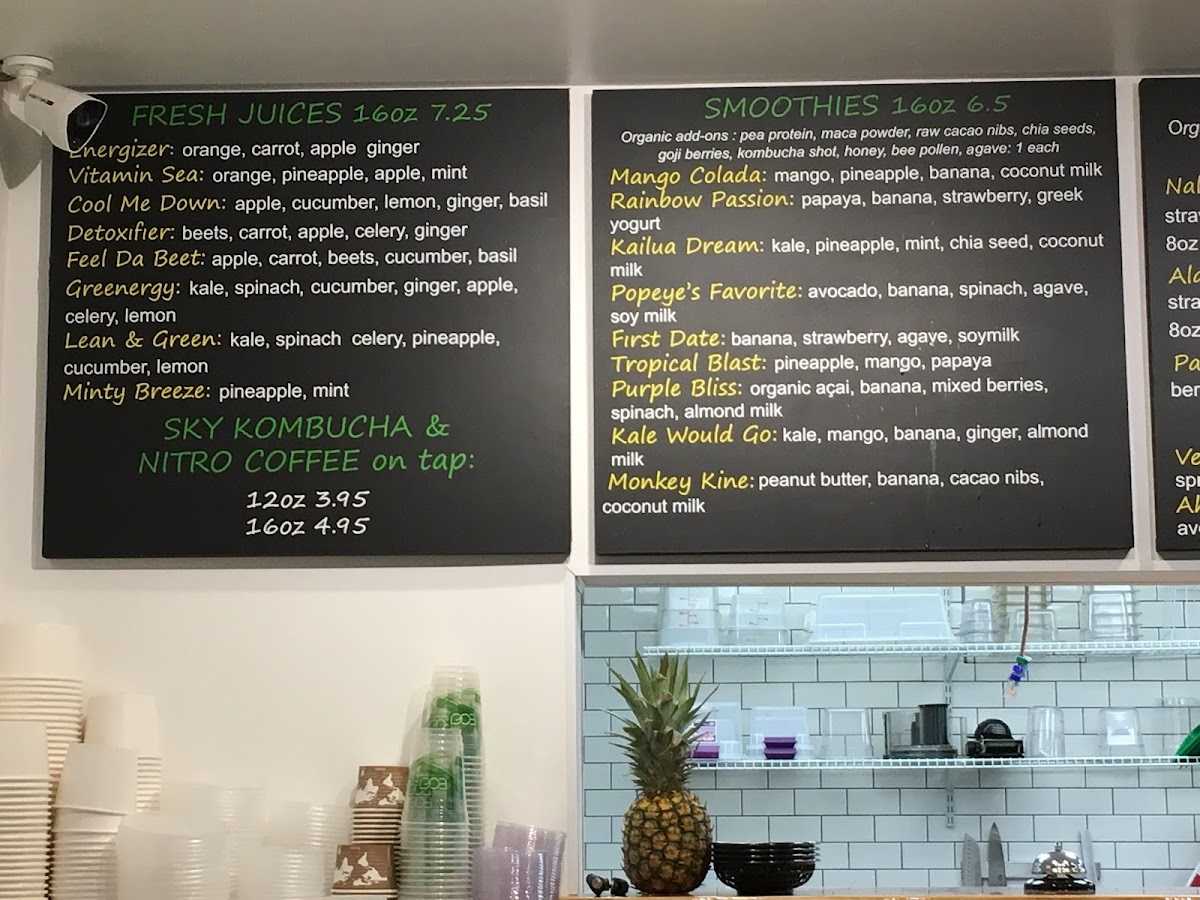 FRESH JUICES 16oz 7.25
Energizer: orange, carrot, apple ginger
Vitamin Sea: orange, pineapple, apple, mint
Cool Me Down: apple, cucumber, lemon, ginger, basil
Detoxifier: beets, carrot, apple, celery, ginger
Feel Da Beet: apple, carrot, beets, cucumber, basil
Greenergy: kale, spinach, cucumber, ginger, apple,
celery, lemon
Lean & Green: kale, spinach celery, pineapple,
cucumber, lemon
Minty Breeze: pineapple, mint
SKY KOMBUCHA &
NITRO COFFEE on tap:
12oz 3.95
16oz 4.95
SMOOTHIES 16oz 6.5
Organic add-ons : pea protein, maca powder, raw cacao nibs, chia seeds,
goji berries, kombucha shot, honey, bee pollen, agave: 1 each
Mango Colada: mango, pineapple, banana, coconut milk
Rainbow Passion: papaya, banana, strawberry, greek
yogurt
Kailua Dream: kale, pineapple, mint, chia seed, coconut
milk
Popeye's Favorite: avocado, banana, spinach, agave,
soy milk
First Date: banana, strawberry, agave, soymilk
Tropical Blast: pineapple, mango, papaya
Purple Bliss: organic açai, banana, mixed berries,
spinach, almond milk
Kale Would Go: kale, mango, banana, ginger, almond
milk
Monkey Kine: peanut butter, banana, cacao nibs,
coconut milk
8oz
8oz
ECO
ECO